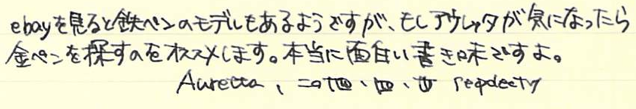 ebayを見ると鉄ペンのモデルもあるようですが、もしアウレッタが気になったら
金ペンを探すのをオススメします。本当に面白い書き味ですよ。
Auretta、